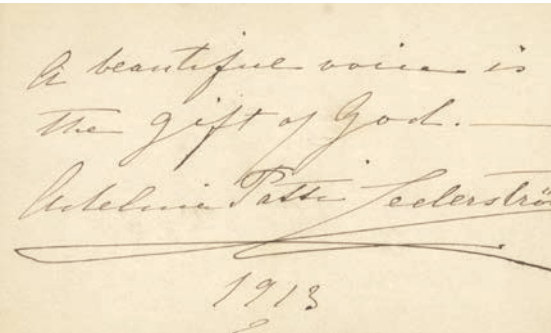 A beautiful voice is
the gift of God. —
Adelina Patti Cederströ
1913